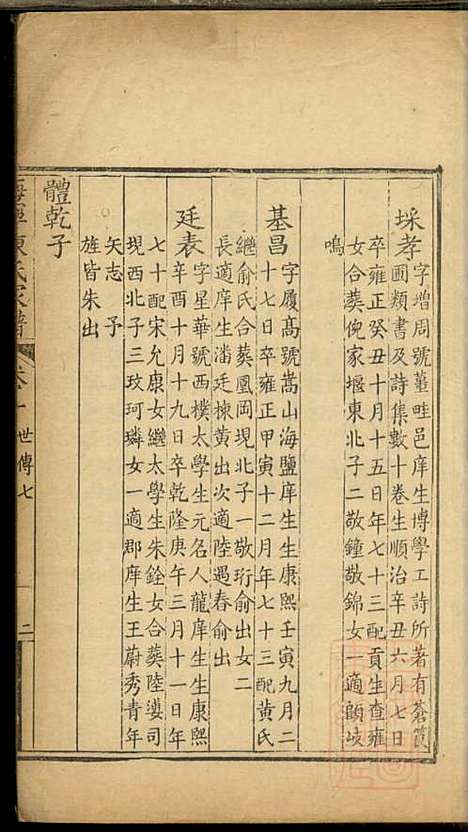 埰孝字增周號菫畦邑庠生博學工詩所著有蒼筤
圃類書及詩集數十卷生順治辛丑六月七日
卒雍正癸丑十月十五日年七十三配貢生查雍
女合葬倪家堰東北子二敬鐘敬錦女一適顧岐
鳴
基昌字履高號嵩山海鹽庠生生康熙壬寅九月二
十七日卒雍正甲寅十二月年七十三配黃氏
繼俞氏合葬鳳岡現北子一敬珩俞出女二
長適庠生潘廷棟黃出次適陸遇春俞出
廷表字星華號西樸太學生元名人龍庠生生康熙
辛酉十月十九日卒乾隆庚午三月十一日年
七十配宋允康女繼太學生朱銓女合葬陸漊司
現西北子三玫珂璘女一適郡庠生王蔚秀青年
矢志 予
旌皆朱出
體乾子
陳氏家譜 卷十 世傳七 二